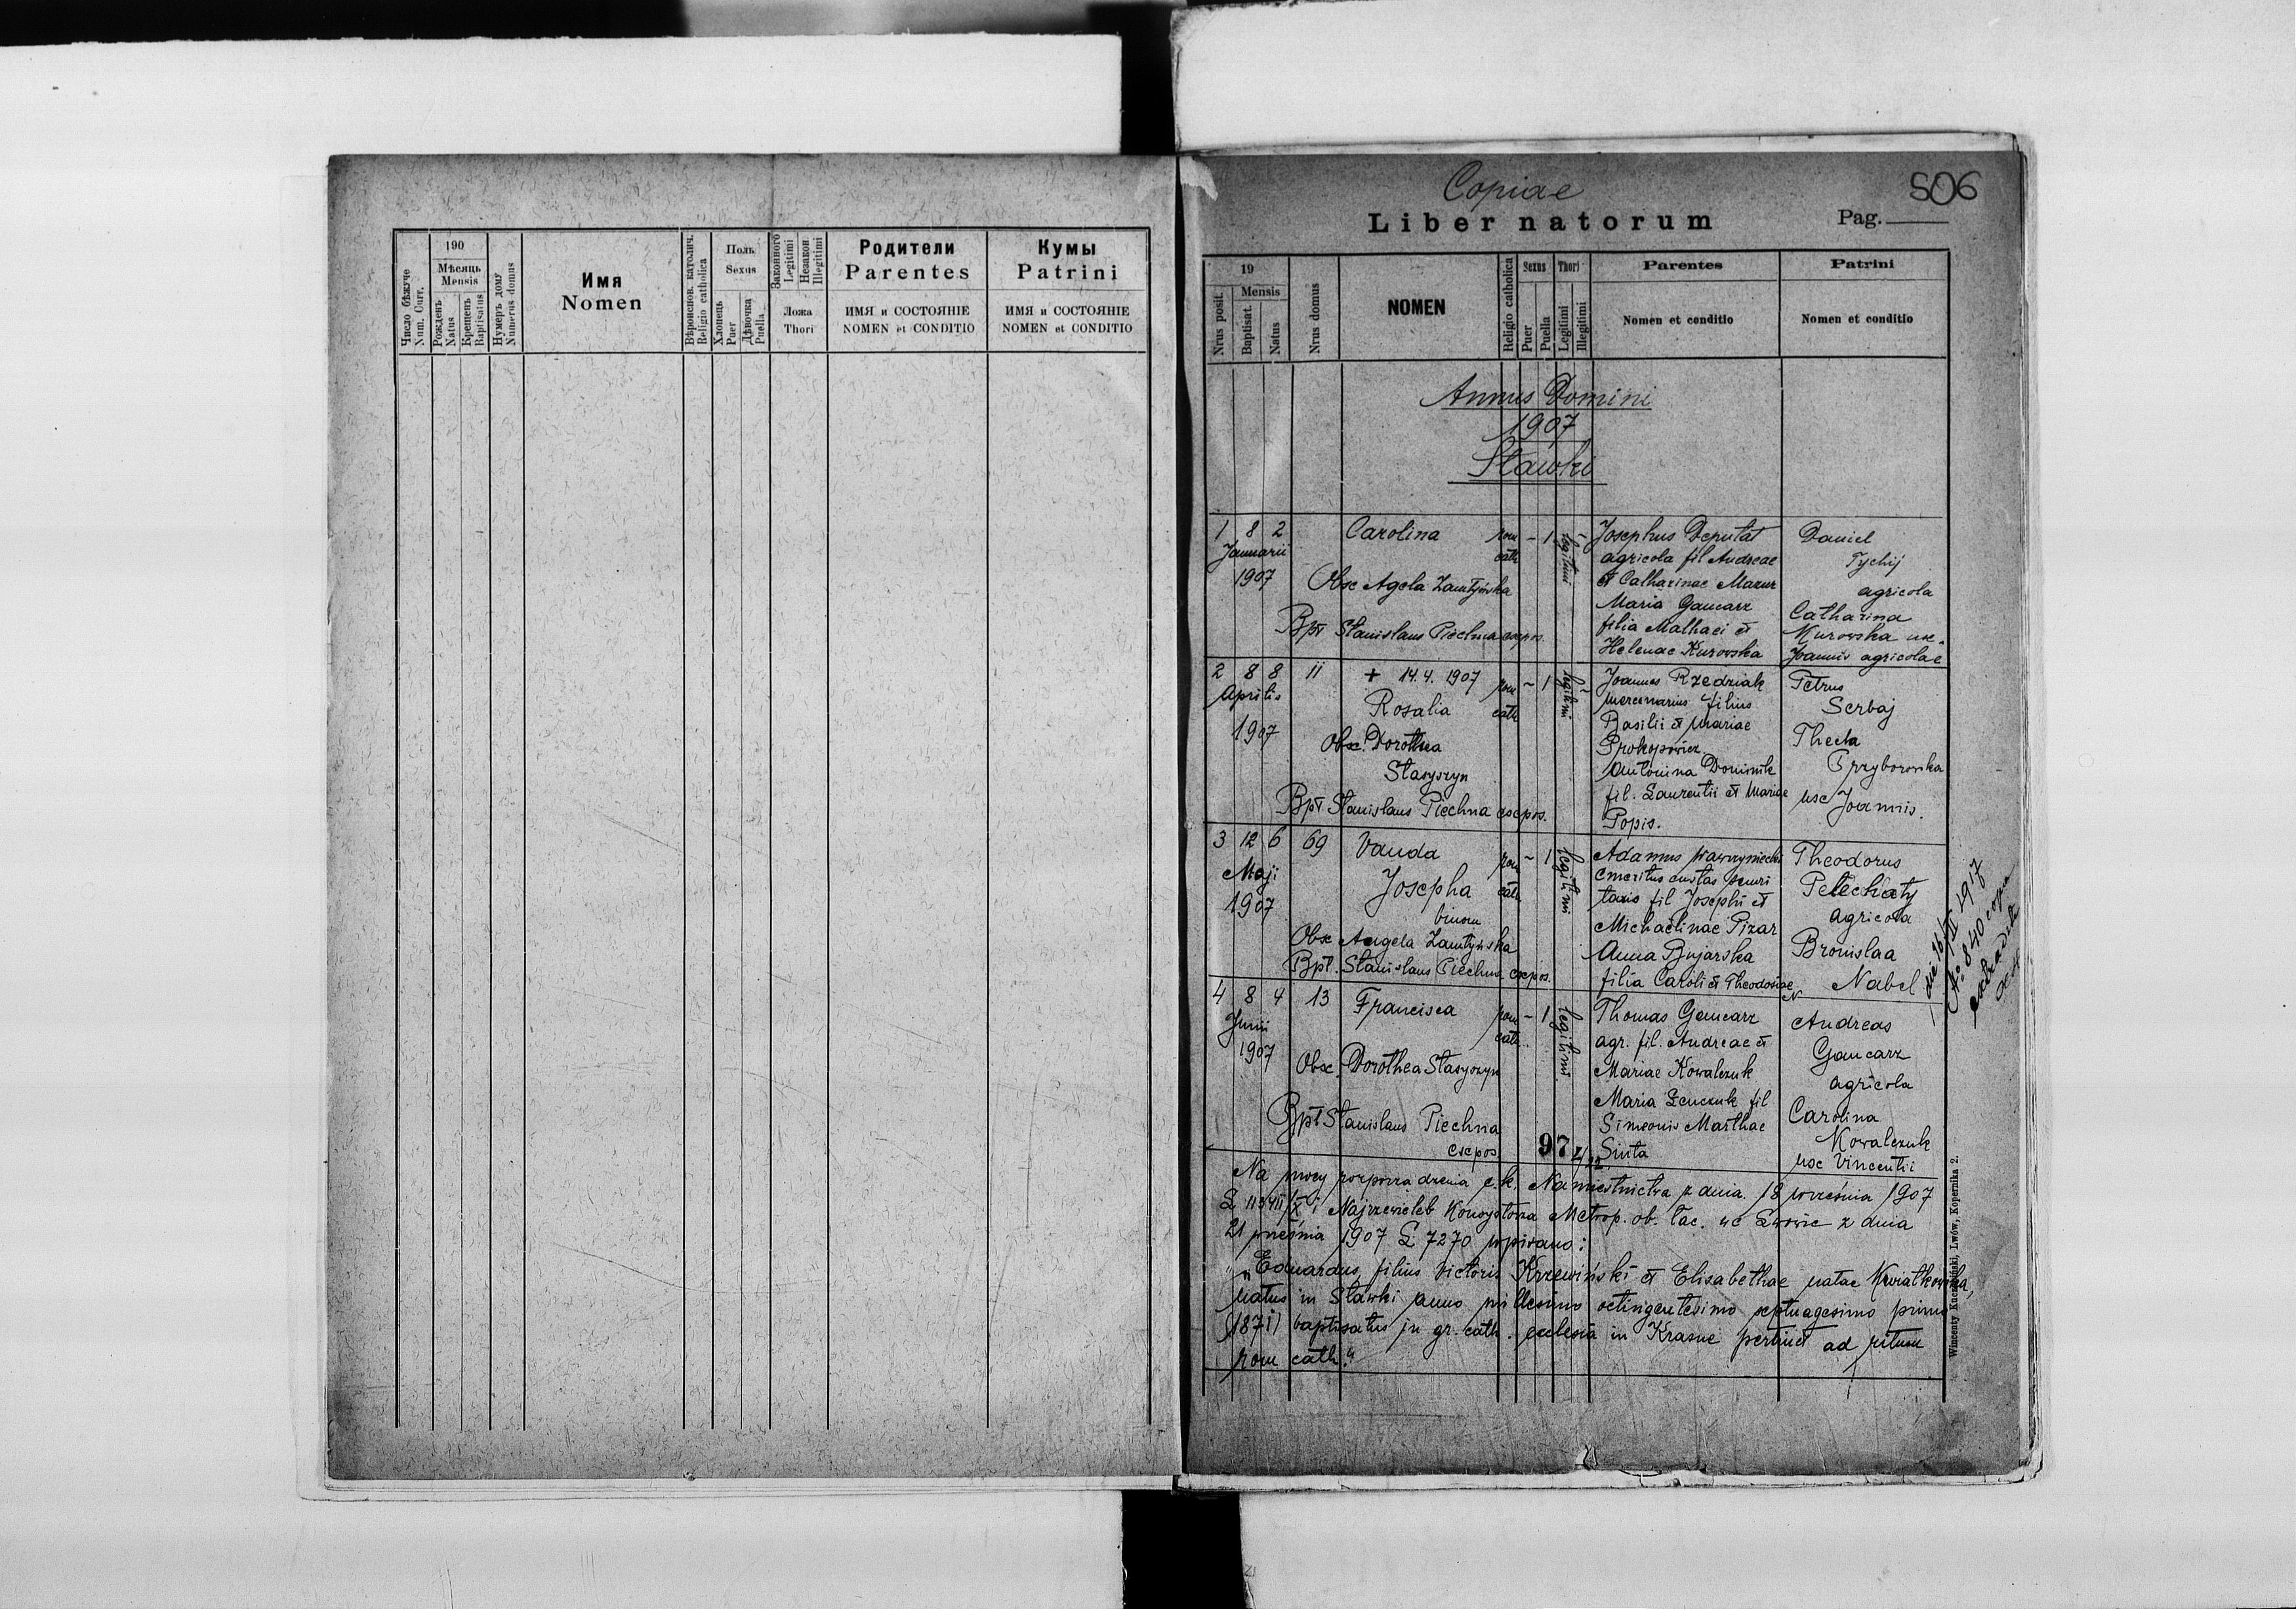 Число бѣжуче
Num. Curr.
190
Мѣсяць
Mensis
Рожденъ
Natus
Крещенъ
Baptisatus
Нумеръ дому
Numerus domus
Имя
Nomen
Вѣроиспов. католич.
Religio catholica
Полъ
Sexus
Хлопець
Puer
Дѣвочка
Puella
Законного
Legitimi
Незакон.
Illegitimi
Ложа
Thori
Родители
Parentes
ИМЯ и СОСТОЯНІЕ
NOMEN et CONDITIO
Кумы
Patrini
ИМЯ и СОСТОЯНІЕ
NOMEN et CONDITIO
Copiae
506
Liber natorum
Pag.
Nrus posit.
19
Mensis
Baptisat.
Natus
Nrus domus
NOMEN
Religio catholica
Sexus
Puer
Puella
Thori
Legitimi
Illegitimi
Parentes
Nomen et conditio
Patrini
Nomen et conditio
Annus Domini
1907
Sławki
1 8 2
Januarii
1907
Carolina
Obs Agela
Bpt Stanislaus Piechna exepos.
rom cath
– 1
legitimi
Josephus Deputat
agricola fil Andreae
et Catharinae Mazur
Maria Gancarz
filia Mathaei et
Helenae Kurowska
Daniel
Tychij
agricola
Catharina
Kurowska ux.
Joannis agricolae
2 8 8 11
Aprilis
1907
+ 14.4.1907
Rosalia
Obs. Dorothea
Stasyszyn
Bpt Stanislaus Piechna exepos.
rom cath
– 1
legitimi
Joannes Rzedziak
mercenarius filius
Basilii et Mariae
Prokopowicz
Antonina Dominik
fil. Laurentii et Mariae
Popis.
Petrus
Serbaj
Thecla
Przyborowska
uxe Joannis.
3 12 6 69
Maji
1907
Vanda
Josepha
binom
Obs Angela
Bpt. Stanislaus Piechna exepos.
rom cath
– 1
legitimi
Adamus
emeritus custos
fil Josephi et
Michaelinae Pizar
Anna Bujarska
filia Caroli et Theodosiae
Theodorus
Pelechaty
agricola
Bronislaa
Nabel
die 16/II 1917
No 840 copia
extradita
4 8 4 13
Junii
1907
Francisca
Obs. Dorothea Stasyszyn
Bpt Stanislaus Piechna
exepos
rom cath.
– 1
legitimi
Thomas Gancarz
agr. fil. Andreae et
Mariae Kowalczuk
Maria Senczuk fil
Simeonis Marthae
Siuta
Andreas
Gancarz
agricola
Carolina
Kowalczuk
uxe Vincentii
97
Na mocy rozporządzenia c.k. Namiestnictwa z dnia. 18 września 1907
i Najprzewieleb Konsystorza Metrop. ob. łac. we Lwowie z dnia
21 września 1907 L 7270 wpisano:
„Eduardus, filius Victoris Krzewiński et Elisabethae natae Kwiatkowska,
natus in Sławki anno millesimo octingentesimo septuagesimo primo
(1871) baptisatus in gr. cath. ecclesia in Krasne pertinet ad ritum
rom cath."
Wincenty Kuczabiński, Lwów, Kopernika 2.